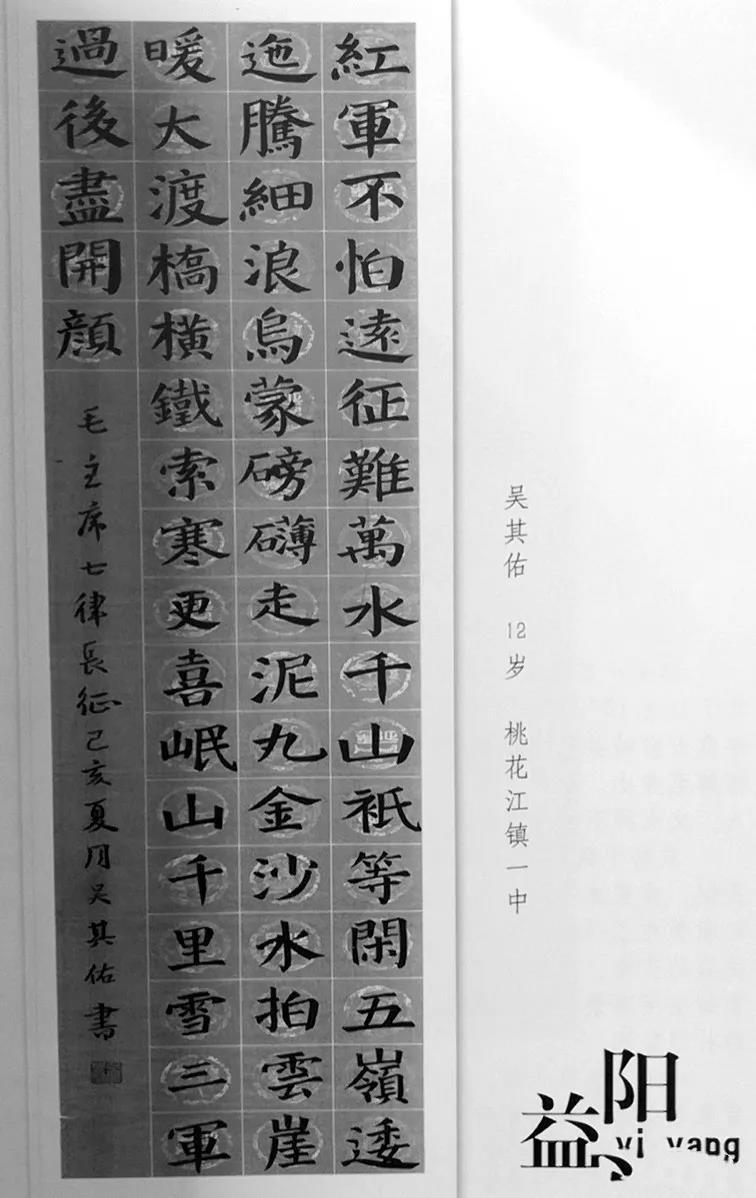 紅軍不怕遠征難萬水千山祇等閑五嶺逶
迤騰細浪烏蒙磅礴走泥丸金沙水拍雲崖
暖大渡橋橫鐵索寒更喜岷山千里雪三軍
過後盡開顔
毛主席七律長征己亥夏月吴其佑書
吴其佑 12岁 桃花江镇一中
益阳
yi yang